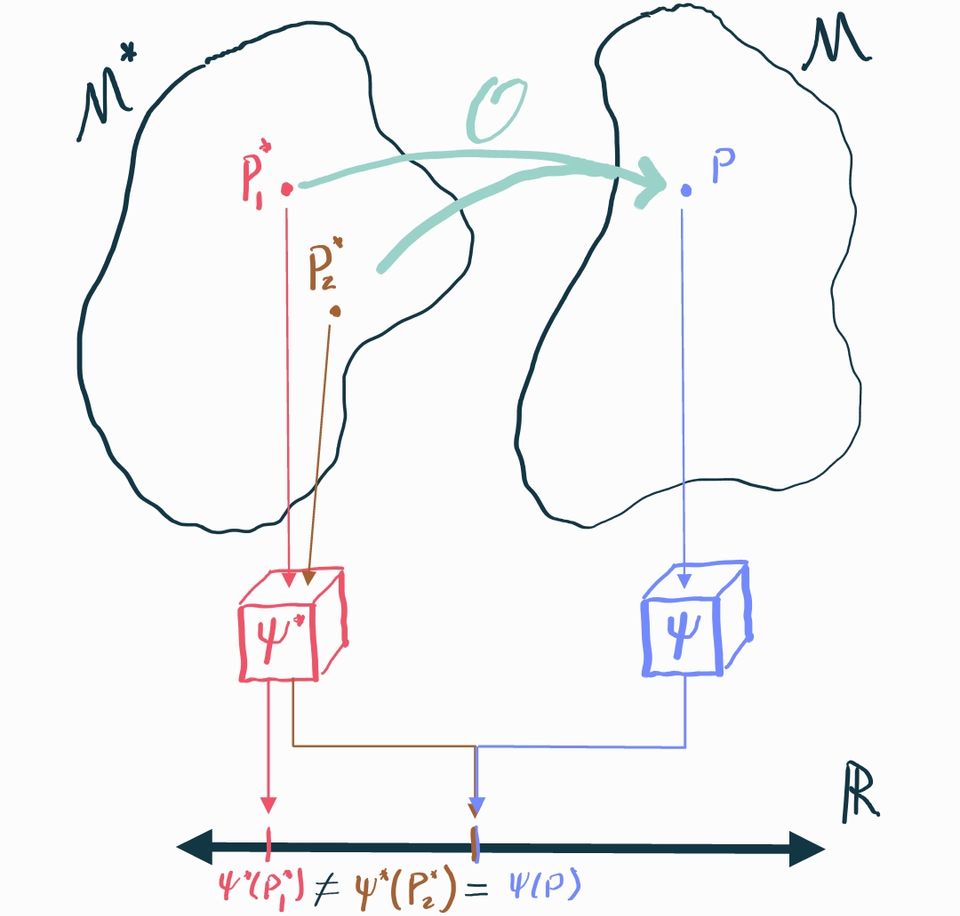 M*
O
M
P₁*
P
P₂*
Ψ*
Ψ
ℝ
Ψ*(P₁*) ≠ Ψ*(P₂*) = Ψ(P)